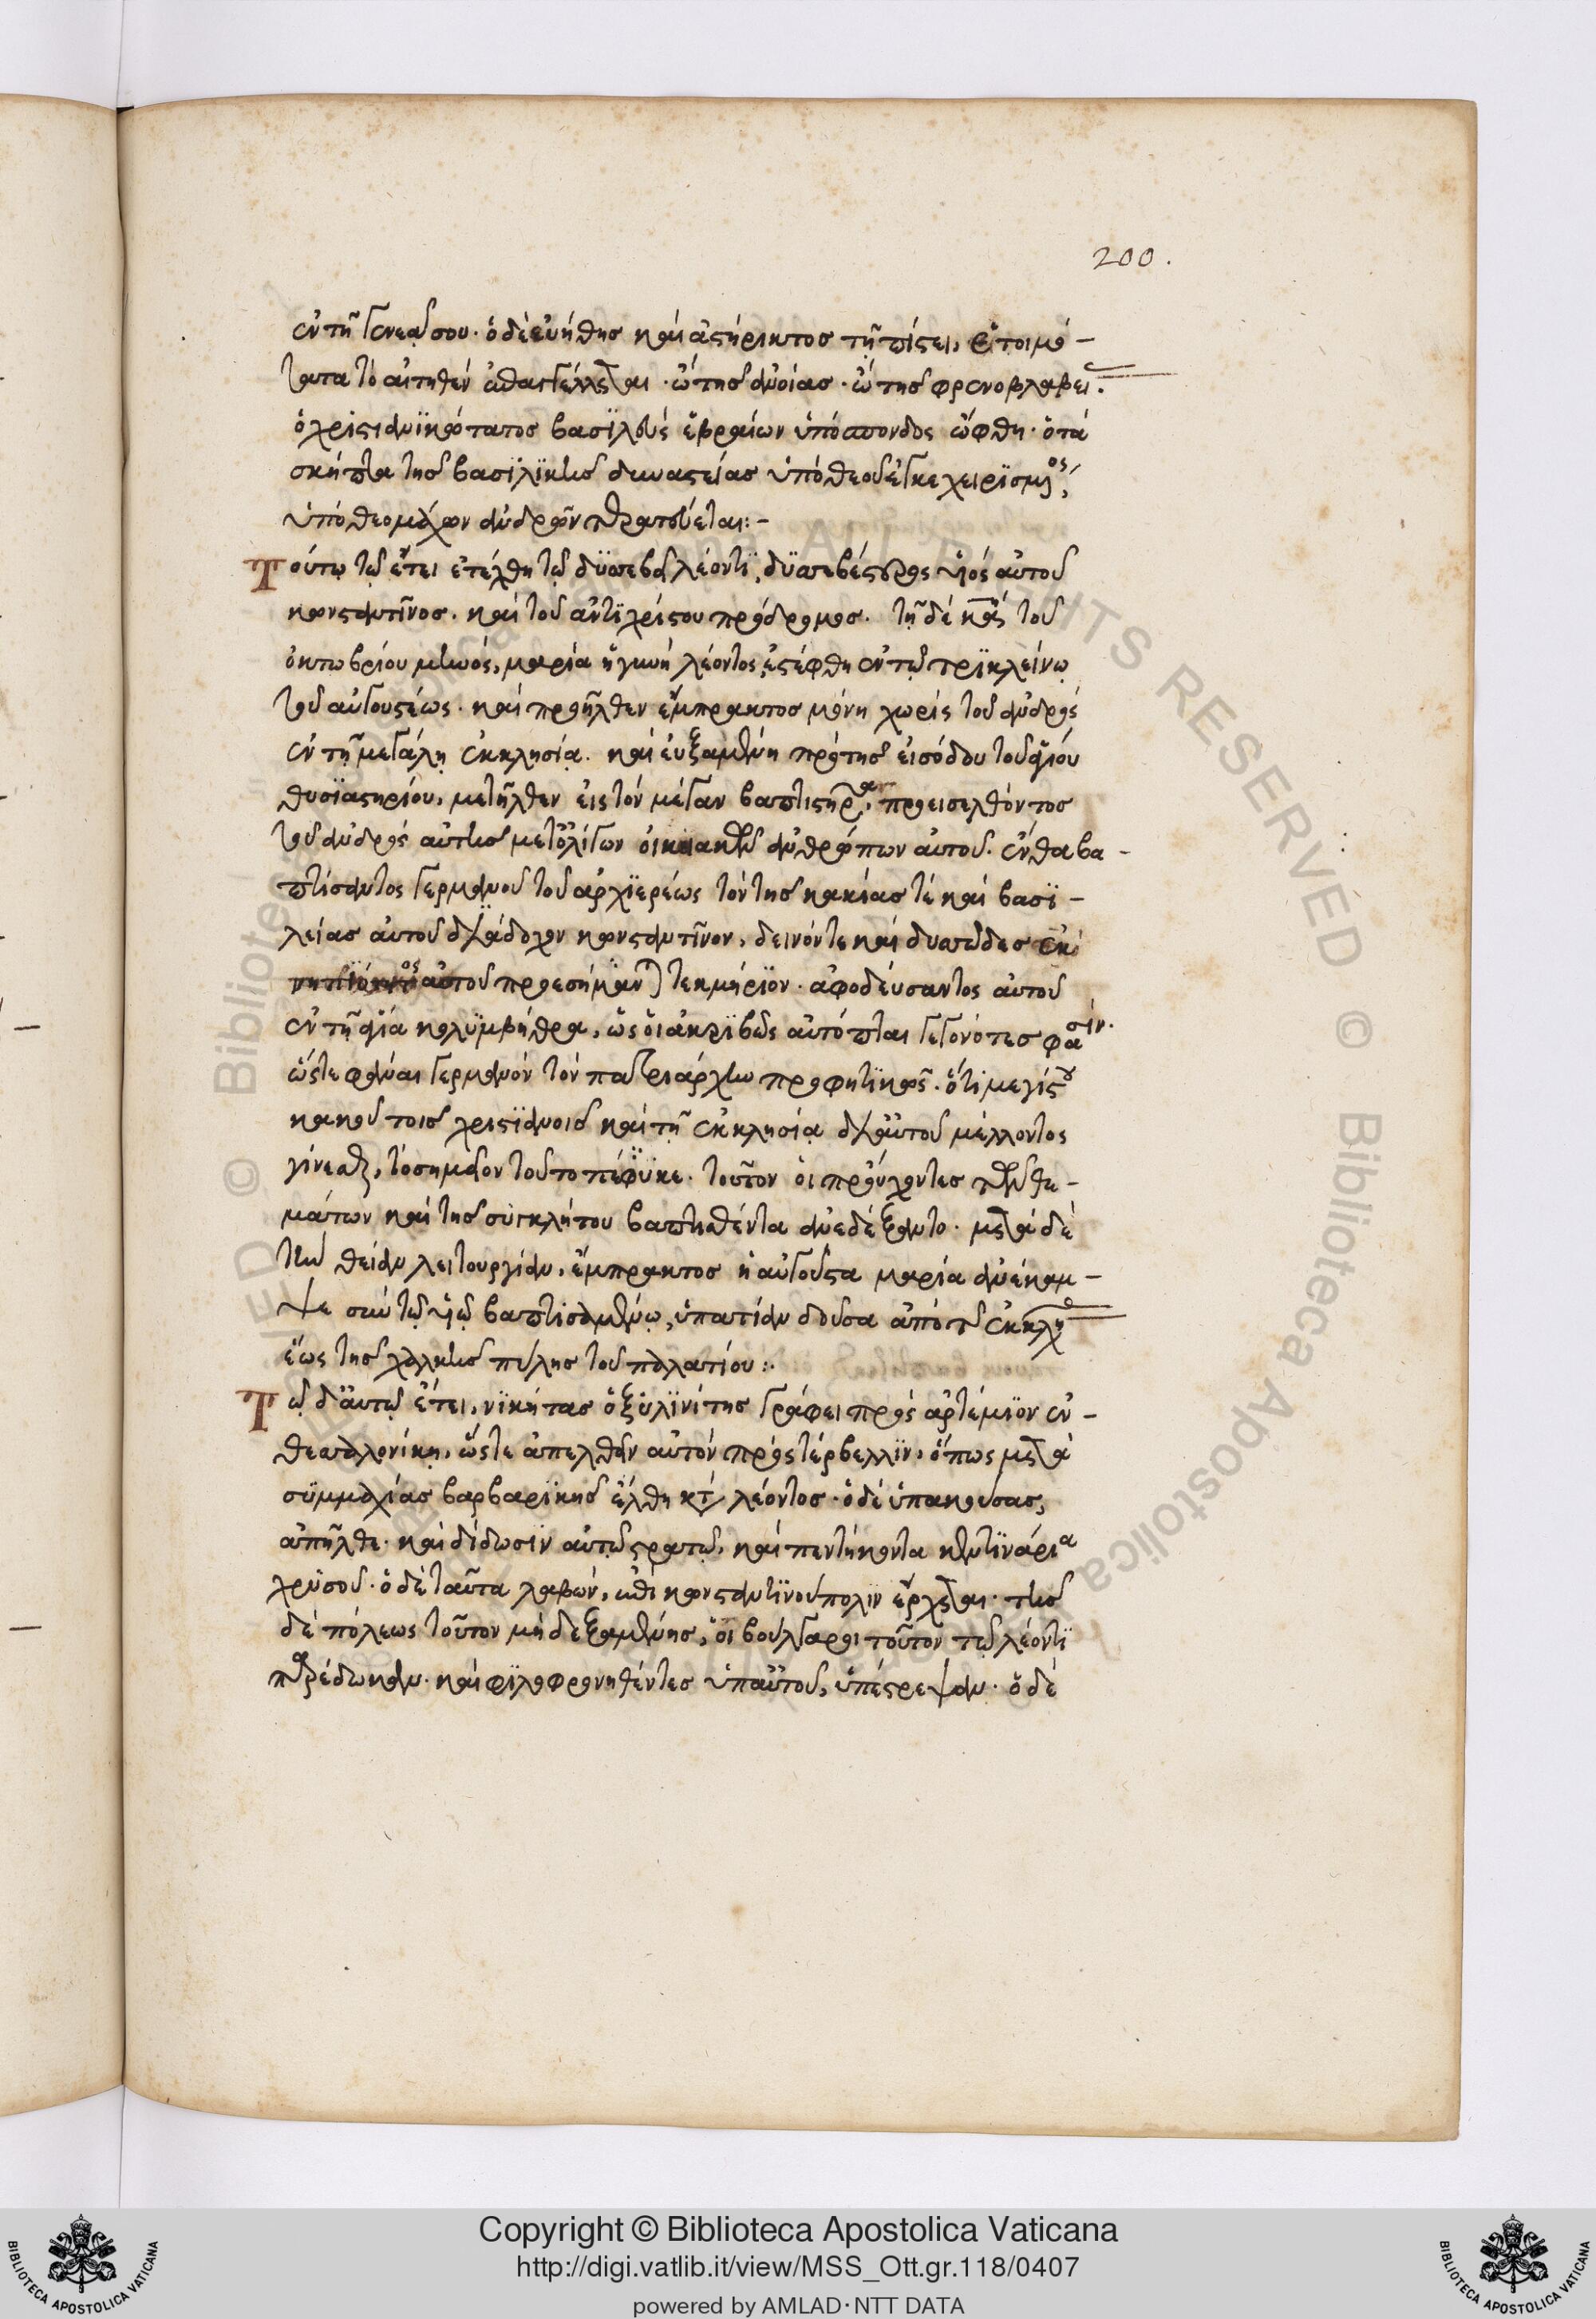 200.
ἐν τῇ γενεᾷ σου· ὁ δὲ εὐήθης καὶ ἀστήρικτος τῇ πίστει, ἑτοιμό-
τατα τὸ αἰτηθὲν ἐπαγγέλλεται· ὢ τῆς ἀνοίας· ὢ τῆς φρενοβλαβεί.
ὁ χριστιανικότατος βασιλεὺς ἑβραίων ὑπόσπονδος ὤφθη· ὁ τὰ
σκῆπτρα τῆς βασιλικῆς δυναστείας ὑπὸ θεοῦ ἐγκεχειρισμένος,
ὑπὸ θεομάχων ἀνδρῶν
Τούτῳ τῷ ἔτει ἐτέχθη τῷ δυσσεβεῖ λέοντι, δυσσεβέστερος υἱὸς αὐτοῦ
κωνσταντῖνος. καὶ τοῦ ἀντιχρίστου πρόδρομος. τῇ δὲ κε τοῦ
ὀκτωβρίου μηνὸς, μαρία ἡ γυνὴ λέοντος, ἐστέφθη ἐν τῷ τρικλείνῳ
τοῦ αὐγουστέως. καὶ προῆλθεν ἔμπρακτος μόνη χωρὶς τοῦ ἀνδρὸς
ἐν τῇ μεγάλῃ ἐκκλησίᾳ. καὶ εὐξαμένη πρὸ τῆς εἰσόδου τοῦ ἁγίου
θυσιαστηρίου, μετῆλθεν εἰς τὸν μέγαν βαπτιστῆρα, προεισελθόντος
τοῦ ἀνδρὸς αὐτῆς μετ' ὀλίγων οἰκιακῶν ἀνθρώπων αὐτοῦ. ἔνθα βα-
πτίσαντος γερμανοῦ τοῦ ἀρχιερέως τὸν τῆς κακίας τὲ καὶ βασι-
λείας αὐτοῦ διάδοχον κωνσταντῖνον, δεινόν τε καὶ δυσῶδες ἐκ
αὐτοῦ προεσήμανε τεκμήριον. ἀφοδεύσαντος αὐτοῦ
ἐν τῇ ἁγίᾳ κολυμβήθρᾳ, ὡς οἱ ἀκριβῶς αὐτόπται γεγονότες φασίν.
ὥστε φάναι γερμανὸν τὸν πατριάρχην προφητικῶς. ὅτι μεγίστου
κακοῦ τοῖς χριστιανοῖς καὶ τῇ ἐκκλησίᾳ δι' αὐτοῦ μέλλοντος
γίνεσθαι, τὸ σημεῖον τοῦτο πέφυκε. τοῦτον οἱ προύχοντες τῶν θε-
μάτων καὶ τῆς συγκλήτου βαπτισθέντα ἀνεδέξαντο. μετὰ δὲ
τὴν θείαν λειτουργίαν, ἔμπρακτος ἡ αὐγοῦστα μαρία ἀνέκαμ-
ψε σὺν τῷ υἱῷ βαπτισαμένῳ, ὑπατίαν δοῦσα ἀπὸ τῆς ἐκκλησίας
ἕως τῆς χαλκῆς πύλης τοῦ παλατίου:.
Τῷ δ' αὐτῷ ἔτει, νικήτας ὁ ξυλινίτης γράφει πρὸς ἀρτέμιον ἐν
θεσσαλονίκῃ, ὥστε ἀπελθεῖν αὐτὸν πρὸς τέρβελλιν, ὅπως μετὰ
συμμαχίας βαρβαρικῆς ἔλθῃ κατὰ λέοντος. ὁ δὲ ὑπακούσας,
ἀπῆλθε. καὶ δίδωσιν αὐτῷ στρατὸν, καὶ πεντήκοντα κεντινάρια
χρυσοῦ. ὁ δὲ ταῦτα λαβὼν, ἐπὶ κωνσταντινούπολιν ἔρχεται. τῆς
δὲ πόλεως τοῦτον μὴ δεξαμένης, οἱ βούλγαροι τοῦτον τῷ λέοντι
παρέδωκαν. καὶ φιλοφρονηθέντες ὑπ' αὐτοῦ, ὑπέστρεψαν. ὁ δὲ
Copyright © Biblioteca Apostolica Vaticana
http://digi.vatlib.it/view/MSS_Ott.gr.118/0407
powered by AMLAD·NTT DATA
BIBLIOTECA APOSTOLICA VATICANA
BIBLIOTECA APOSTOLICA VATICANA